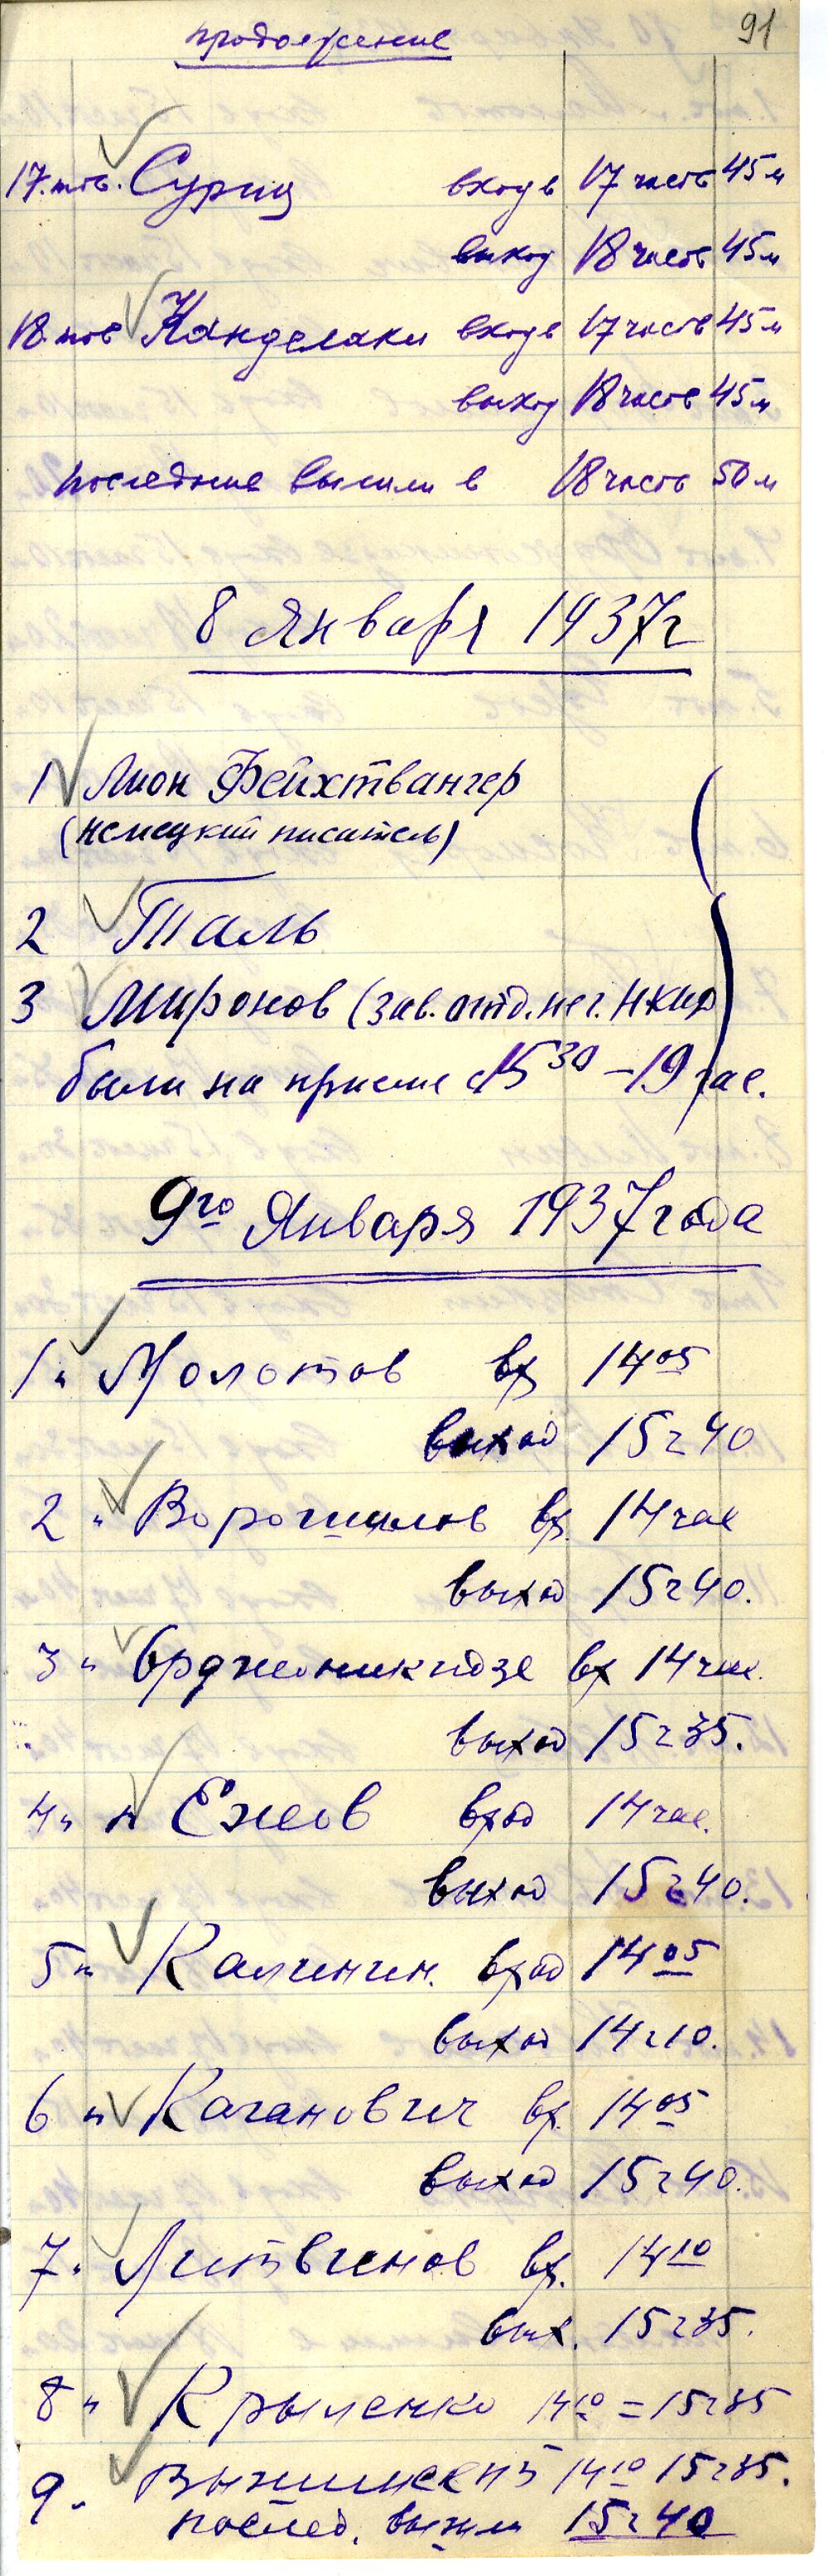 91
продолжение
17. тов. Суриц входъ 17 часов 45 м
выход 18 часов 45 м
18. тов Канделаки входъ 17 часов 45 м
выход 18 часов 45 м
последние вышли в 18 часов 50 м
8 Января 1937г
1 Лион Фейхтвангер
(немецкий писатель)
2 Таль
3 Миронов (зав. отд. печ. НКИД)
были на приеме с 15 30 – 19 час.
9го Января 1937 года
1 " Молотов вх 14 05
выход 15 ч 40
2 " Ворошилов вх. 14 час
выход 15 ч 40.
3 " Орджоникидзе вх 14 час.
выход 15 ч 35.
4 " Ежов вход 14 час.
выход 15 ч 40.
5 " Калинин. вход 14 05
выход 14 ч 10.
6 " Каганович вх. 14 05
выход 15 ч 40.
7 " Литвинов вх. 14 10
вых. 15 ч 35.
8 " Крыленко 14 10 = 15 ч 35
9 " Вышинский 14 10 15 ч 35.
послед. вышли 15 ч 40